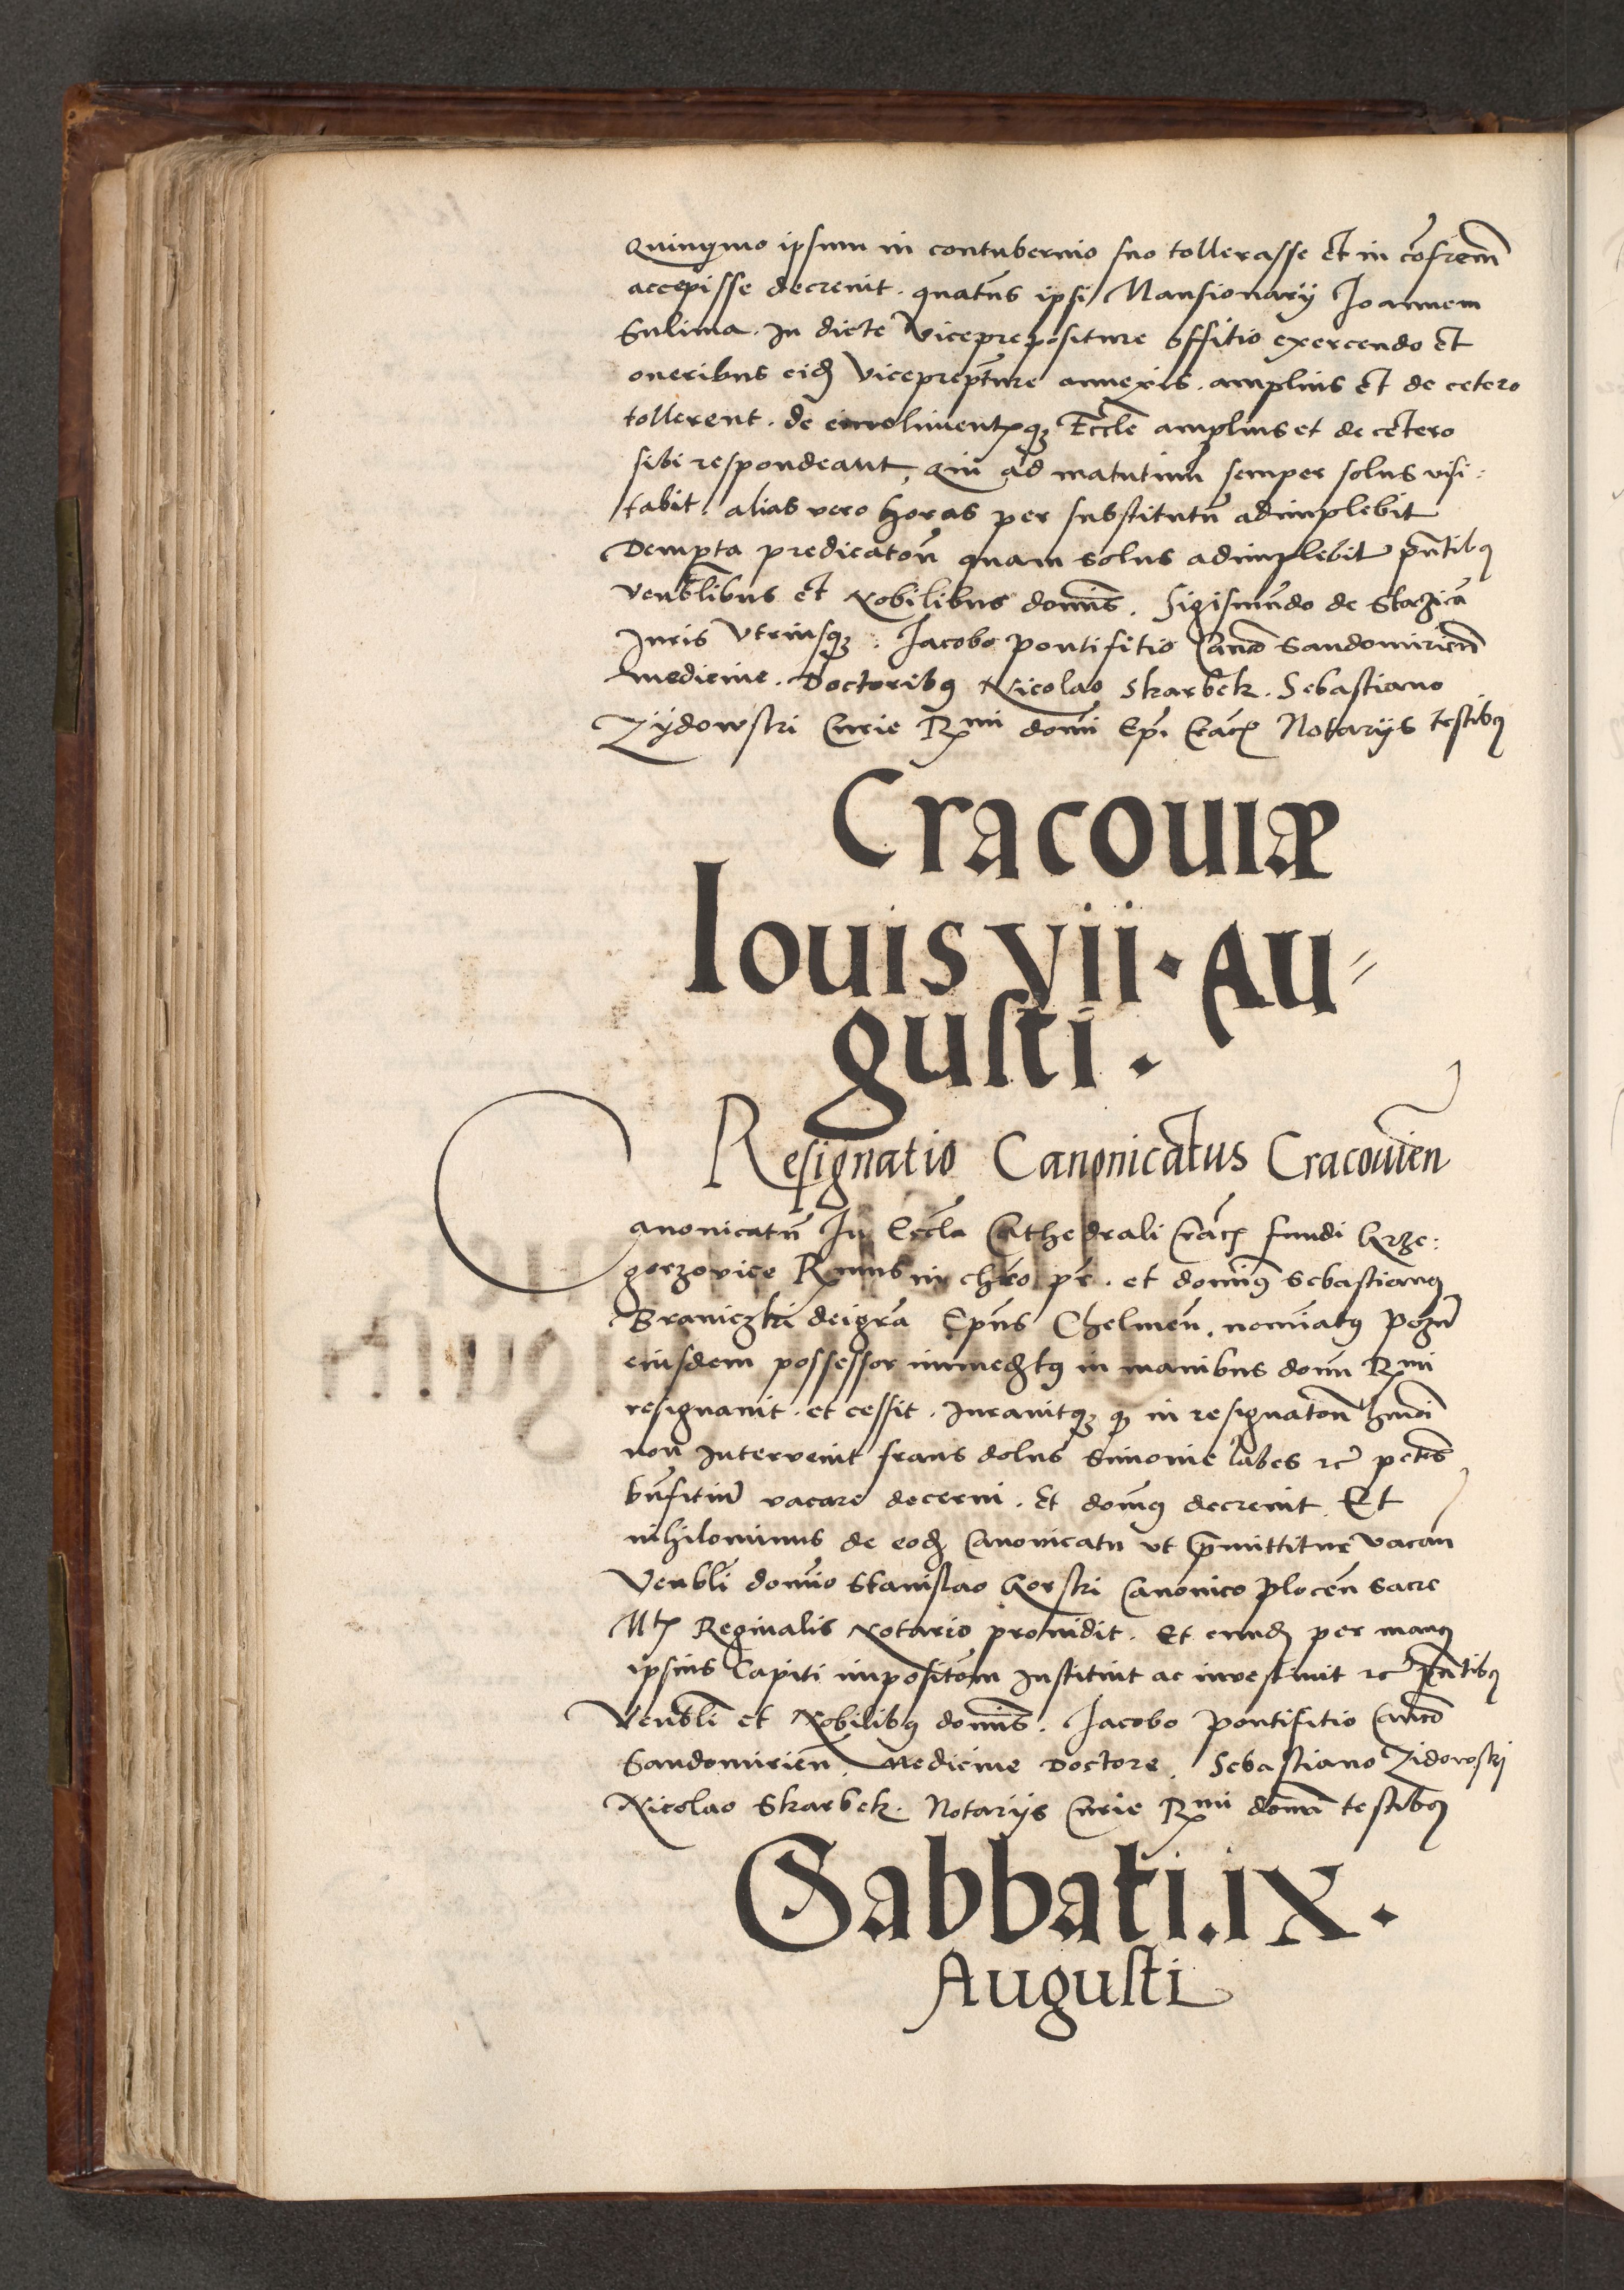 Quinymo ipsum in contubernio suo tollerasse et in cōfrem̄
accepisse decreuit. quatn̄s ipsi Mansionarij Joannem
Sulima. In dicte Viceprepositure offitio exercendo et
oneribus eid̄ Vicepreptūre annexis. amplius et de cetero
tollerent. de emolimentꝫ Eccle amplius et de cetero
sibi respondeant, Qui ad matutinū semper solus visi:
tabit. alias vero horas per substitutū adimplebit
Dempta predicatōn quam solus adimplebit pn̄tibꝰ
venblibus et Nobilibus dom̄is. Sigismūdo de Stazica
Juris Vtriusqꝫ. Jacobo pontifitio Canco Sandomirien̄
medicine. Doctoribꝰ Nicolao Skarbek. Sebastiano
Zÿdowski Curie Rmi dom̄i Ep̄i Crac̄ Notarijs testibꝰ
Cracouiæ
Iouis vii. Au=
gusti.
Resignatio Canonicatus Cracouien̄
Canonicatū In Eccla Cathedrali Crac̄ fundi Grze:
gorzovice Rmus in chro pr̄. et domin̄ꝰ Sebastianꝰ
Braniczki dei gra Ep̄us Chelmen̄. nomiatꝰ pozn̄
eiusdem possessor immedtꝰ in manibus dom̄i Rmi
resignauit. et cessit. Jurauitqꝫ qꝫ in resignatōn hmoi
non Intervenit fraus dolus Simonie labes rc̄ petēs
bn̄fitiū vacare decerni. Et domꝰ decreuit. Et
nihilominus de eod̄ Canonicatu vt p̄mittitur vacan̄
Venbli domino Stanislao Gorski Canonico plocen̄ Sacre
Mtꝭ Reginalis Notario prouidit. Et eund̄ per manꝰ
ipsius Capiti impositōm Instituit ac inuestiuit rc̄ pn̄tibꝰ
Venbli et Nobilibꝰ dom̄is. Jacobo pontifitio Canco
Sandomirien̄. Medicine Doctore. Sebastiano Zidowskj
Nicolao Skarbek. Notarijs Curie Rmi dom̄i testibꝰ
Sabbati. ix.
Augusti